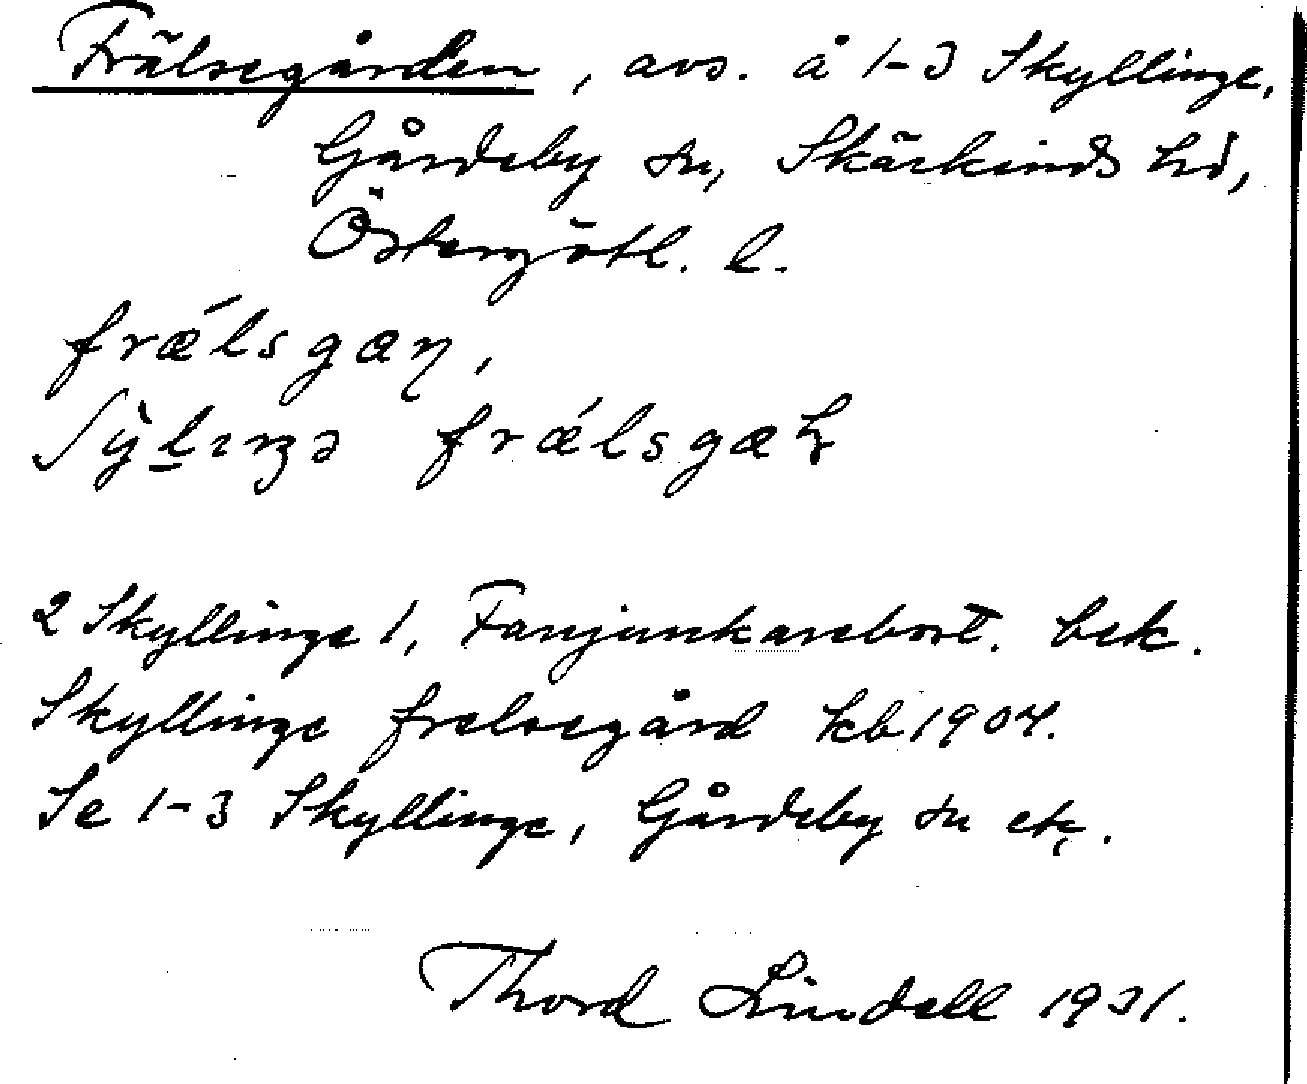 Frälsegården, avs. å 1-3 Skyllinge,
Gårdeby sn, Skärkinds hd,
Östergötl. l.
fræ´lsgaɳ,
fræ´lsgæ
2 Skyllinge 1, Fanjunkarebost. bek.
Skyllinge frelsegård kb 1904.
Se 1-3 Skyllinge, Gårdeby sn etc.
Thord Lindell 1931.